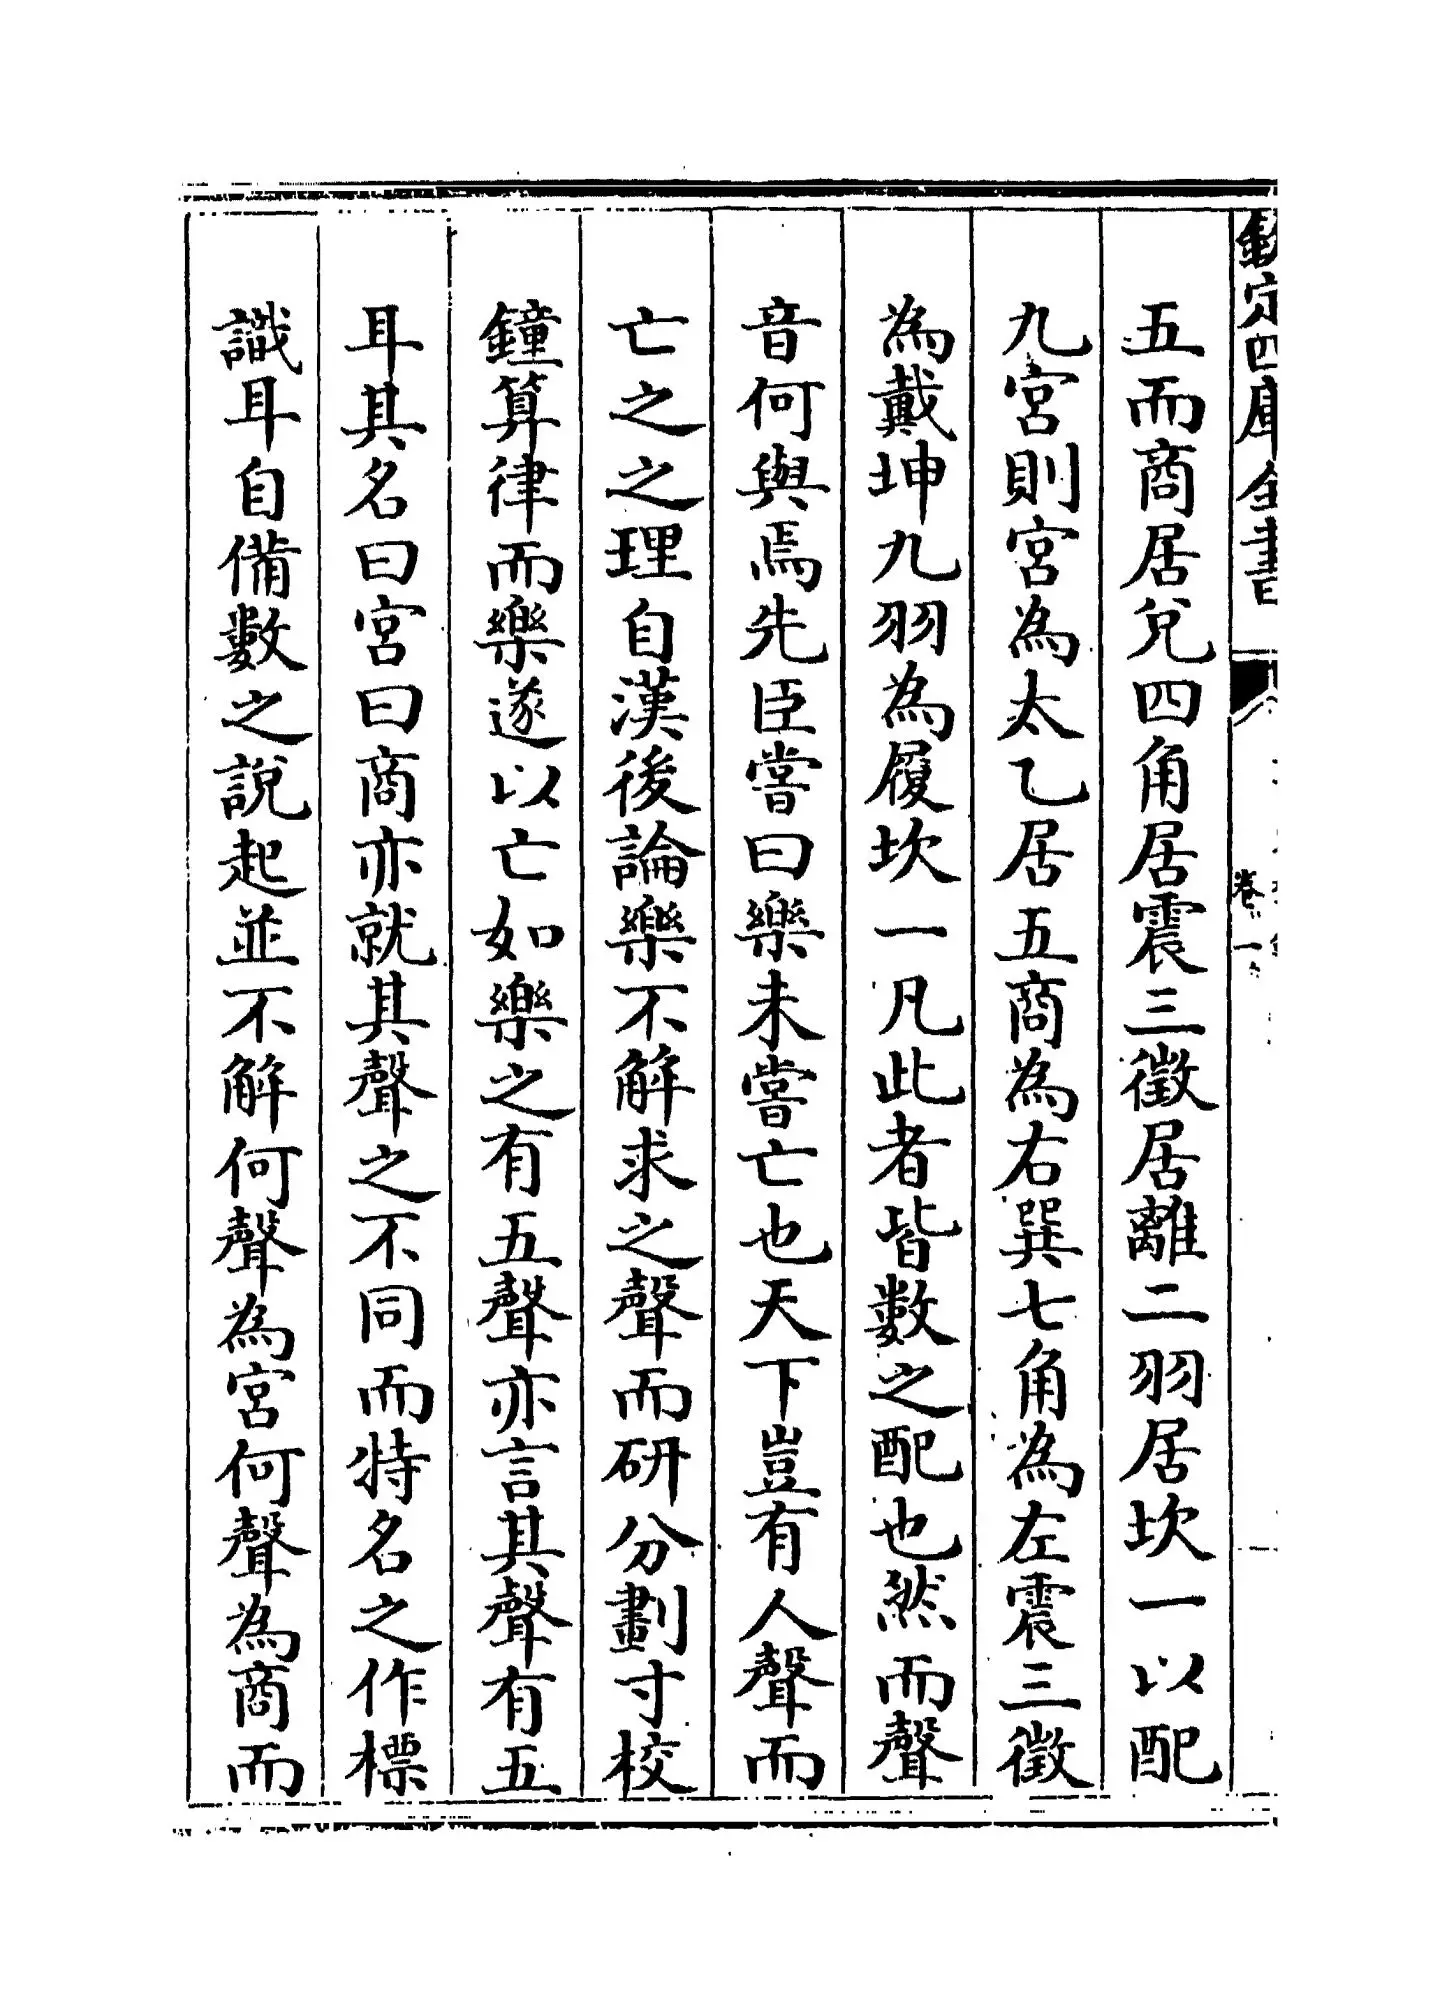 欽定四庫全書
卷一
五而商居兌四角居震三徵居離二羽居坎一以配
九宮則宮為太乙居五商為右巽七角為左震三徵
為戴坤九羽為履坎一凡此者皆數之配也然而聲
音何與焉先臣嘗曰樂未嘗亡也天下豈有人聲而
亡之之理自漢後論樂不解求之聲而研分劃寸校
鐘算律而樂遂以亡如樂之有五聲亦言其聲有五
耳其名曰宮曰商亦就其聲之不同而特名之作標
識耳自備數之說起並不解何聲為宮何聲為商而